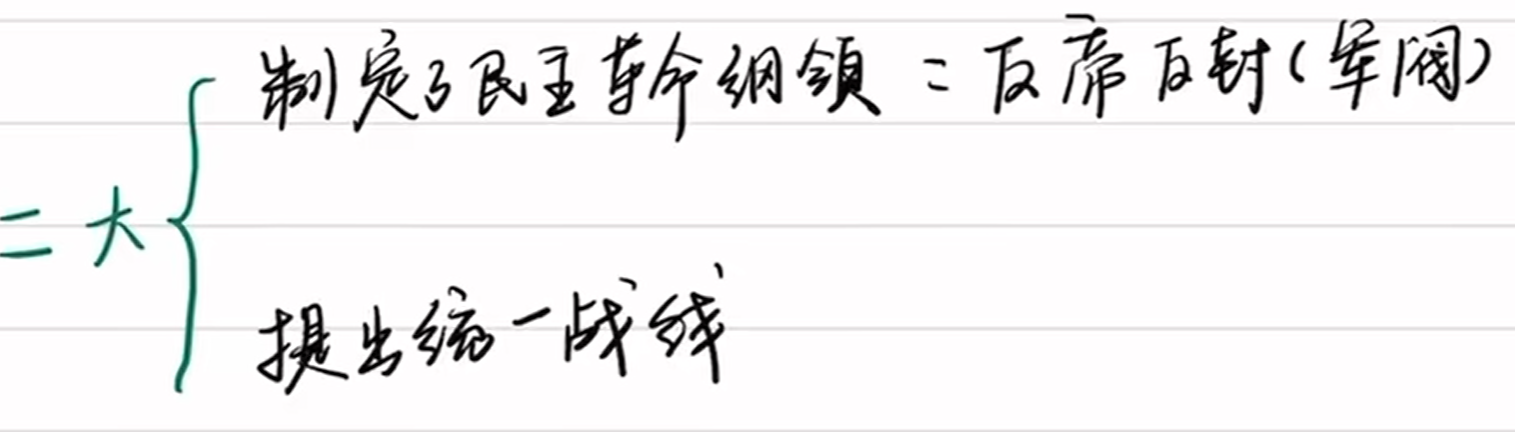 制定了民主革命纲领=反帝反封(军阀)
二大
提出统一战线